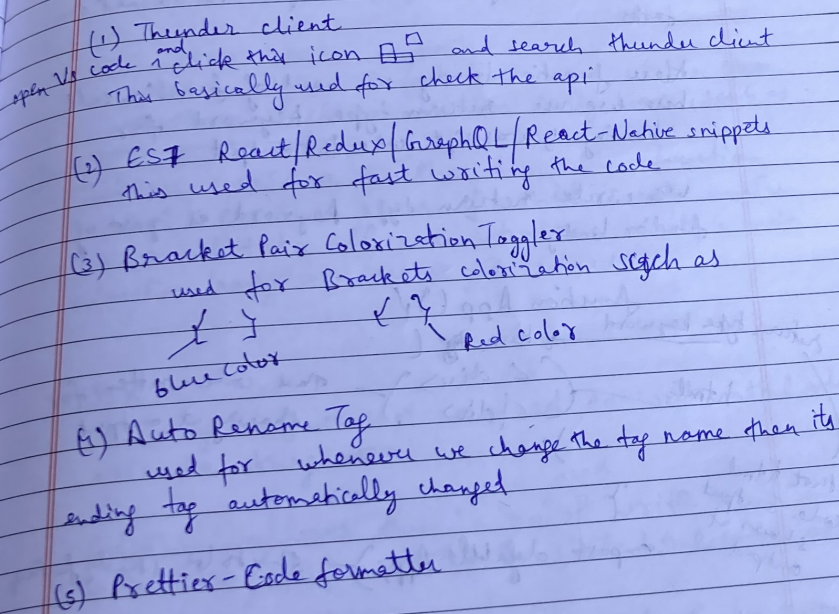 (1) Thunder client
open Vs code and click this icon and search thunder client
This basically used for check the api
(2) ES7 React/Redux/GraphQL/React-Native snippets
this used for fast writing the code
(3) Bracket Pair Colorization Toggler
used for Brackets colorization such as
{ } { }
blue color Red color
(4) Auto Rename Tag
used for whenever we change the tag name then its
ending tag automatically changed
(5) Prettier-Code formatter